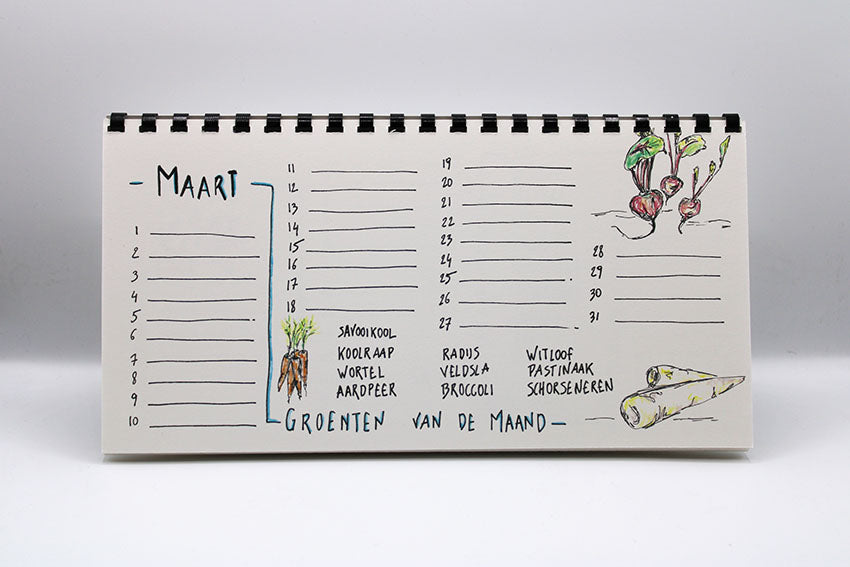 - MAART -
1
2
3
4
5
6
7
8
9
10
11
12
13
14
15
16
17
18
19
20
21
22
23
24
25
26
27
28
29
30
31
SAVOOIKOOL
KOOLRAAP
WORTEL
AARDPEER
RADIJS
VELDSLA
BROCCOLI
WITLOOF
PASTINAAK
SCHORSENEREN
GROENTEN VAN DE MAAND -